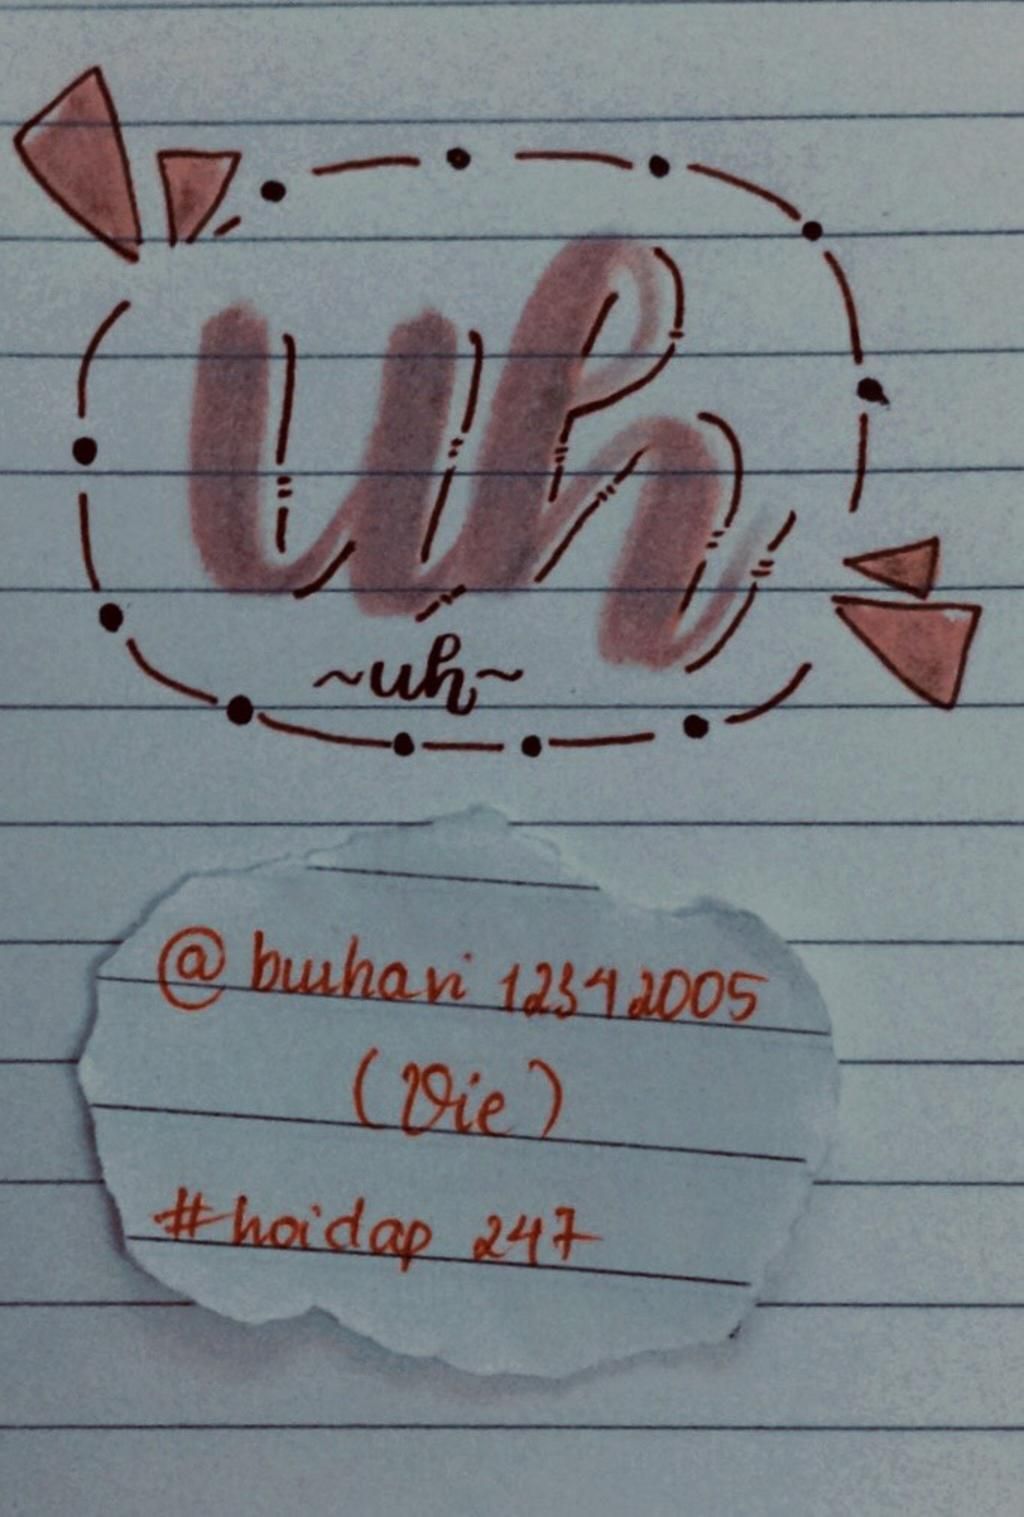 uh
~uh~
@buuhavi 12342005
(Vie)
#hoidap 247